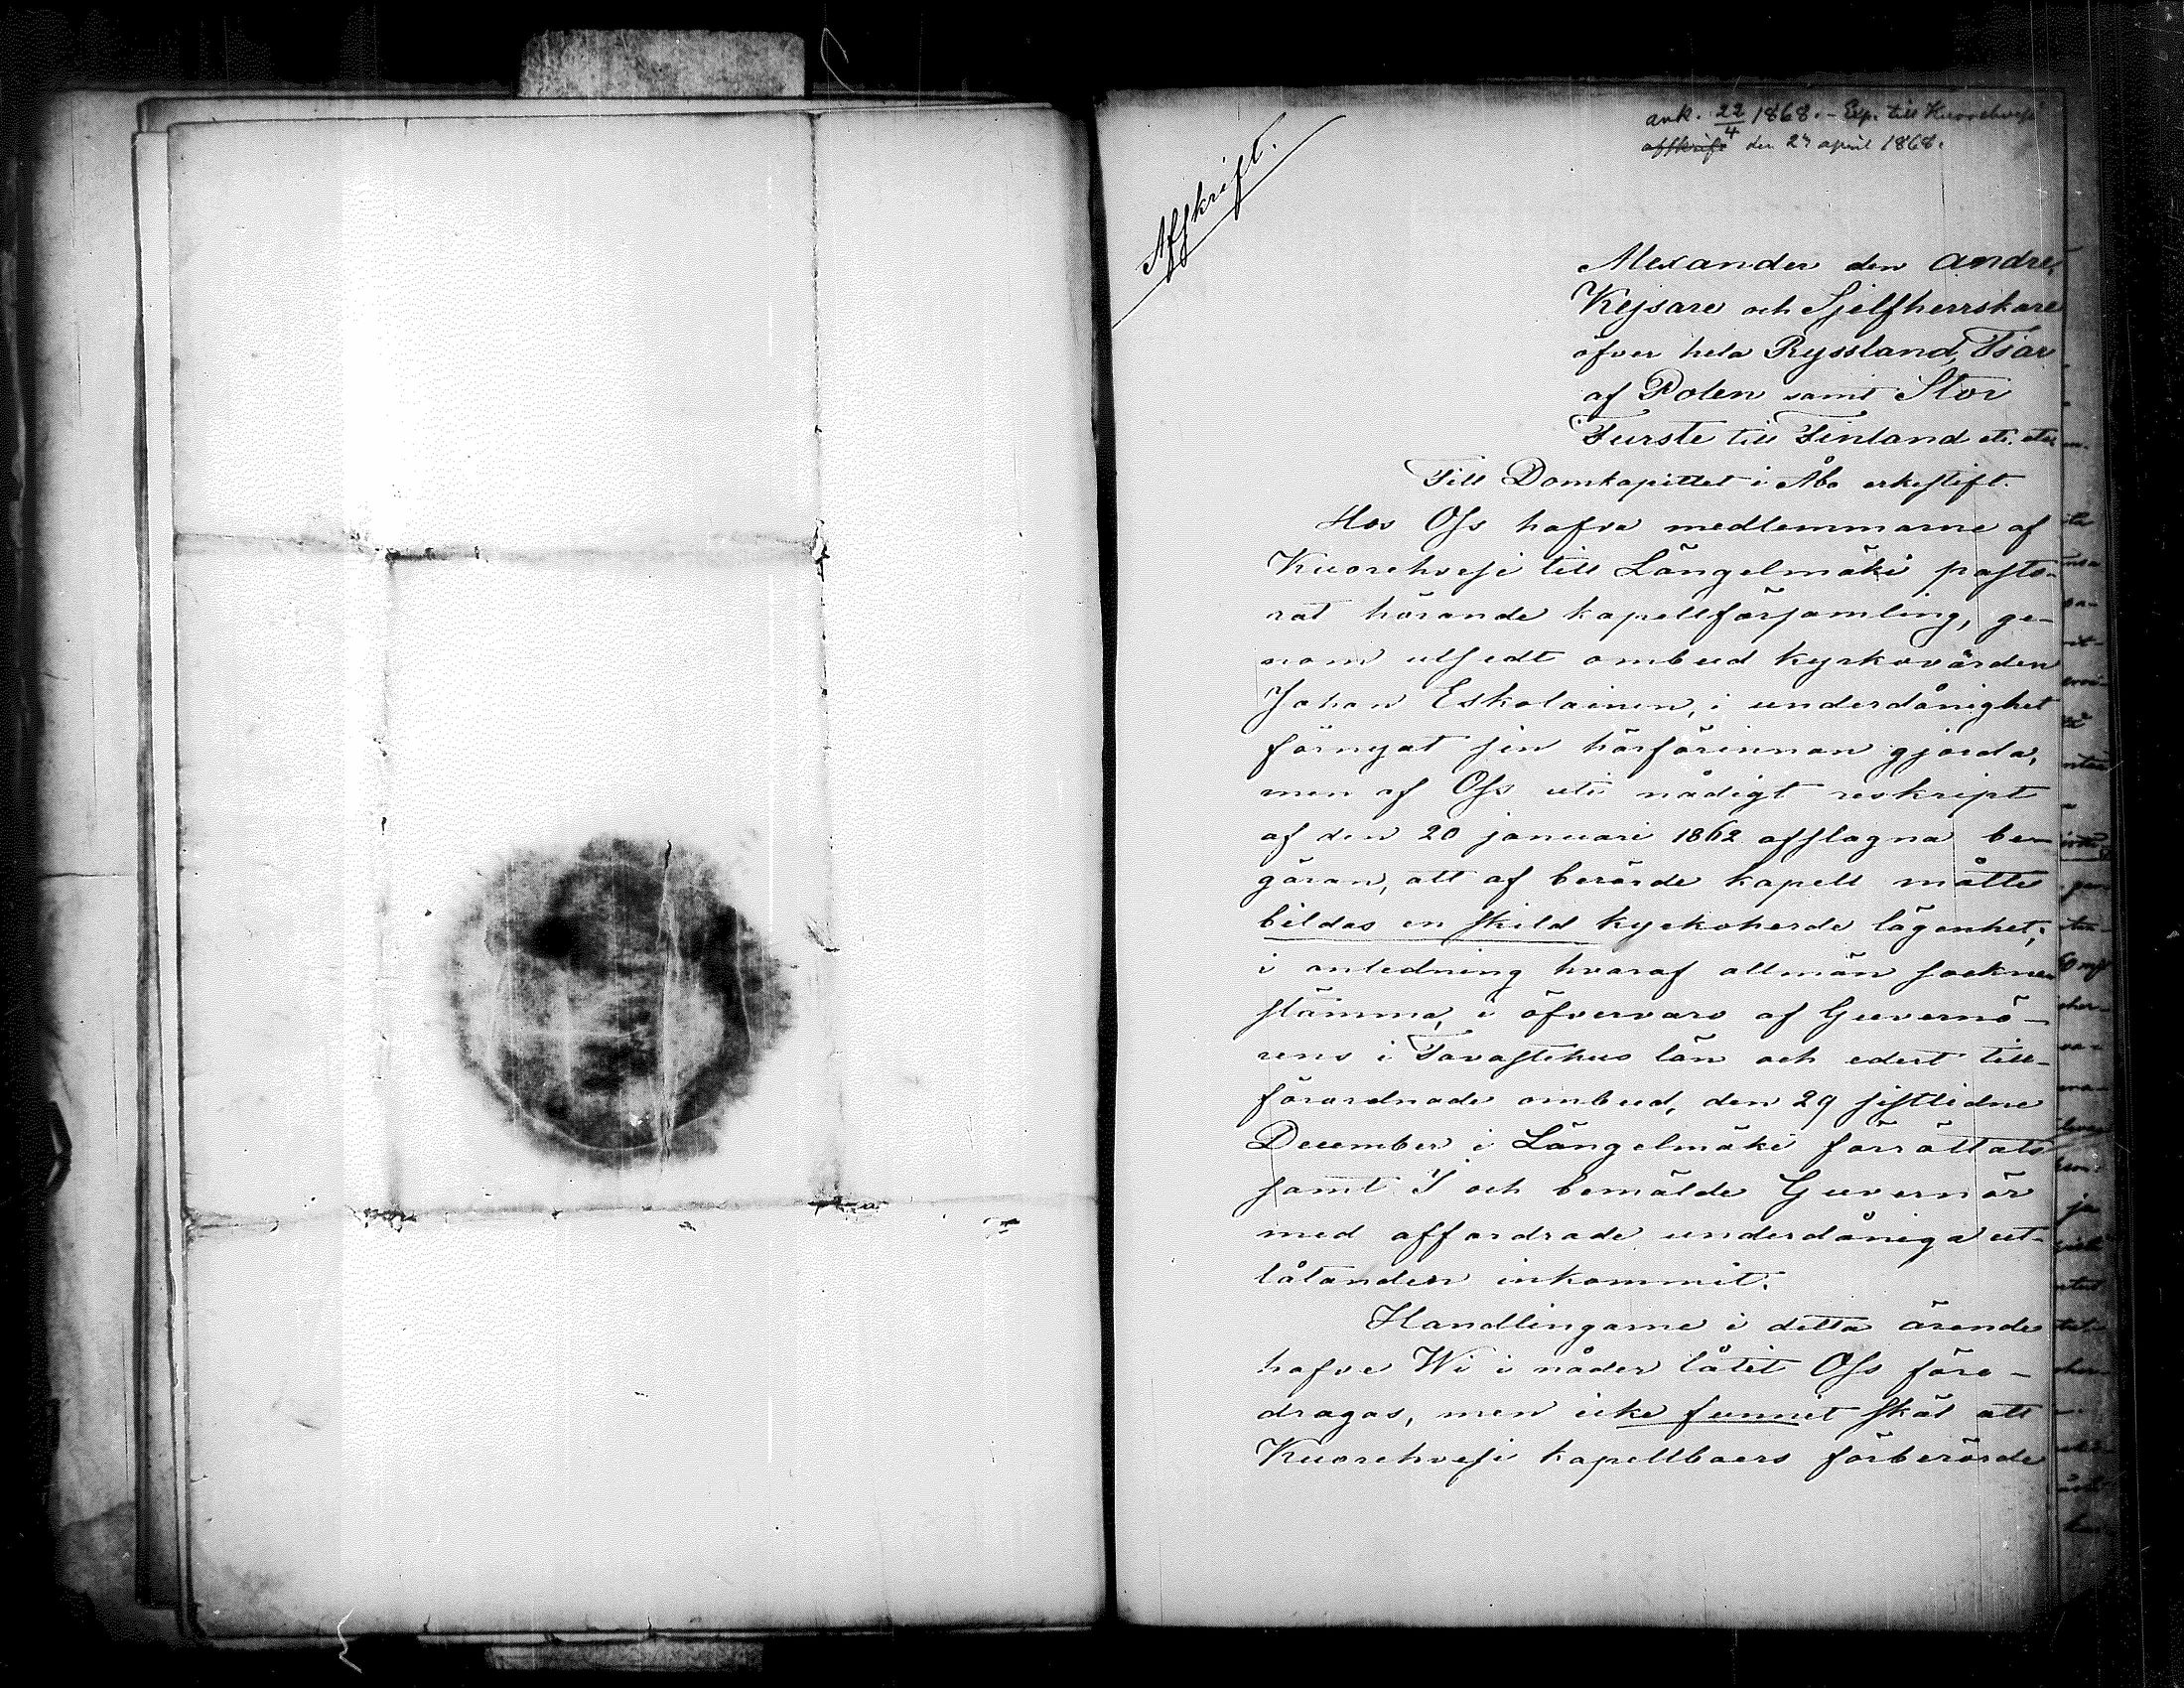 ank. 22/4 1868. - Exp. till Kuorehvesi
affskrift den 27 april 1868.
Affskrift.
Alexander den Andre,
Kejsare och Sjelfherrskare
öfver hela Ryssland, Tsar
af Polen samt Stor
Furste till Finland etc. etc.
Till Domkapitlet i Åbo erkestift.
Hos Oss hafva medlemmarne af
Kuorehvesi till Längelmäki pasto-
rat hörande kapellförsamling, ge-
nom utsedt ombud kyrkovärden
Johan Eskolainen, i underdånighet
förnyat sin härförinnan gjorda,
men af Oss uti nådigt reskript
af den 20 januari 1862 afslagna be-
gäran, att af berörde kapell måtte
bildas en skild kyrkoherde lägenhet;
i anledning hvaraf allmän socknes
stämma, i öfvervaro af Guvernö-
rens i Tavastehus län och edert till-
förordnade ombud, den 29 sistlidne
December i Längelmäki förrättats
samt I och bemälde Guvernör
med affordrade underdåniga ut-
låtanden inkommit.
Handlingarne i detta ärende
hafve Wi i nåder låtit Oss före-
dragas, men icke funnet skäl att
Kuorehvesi kapellboers förberörde